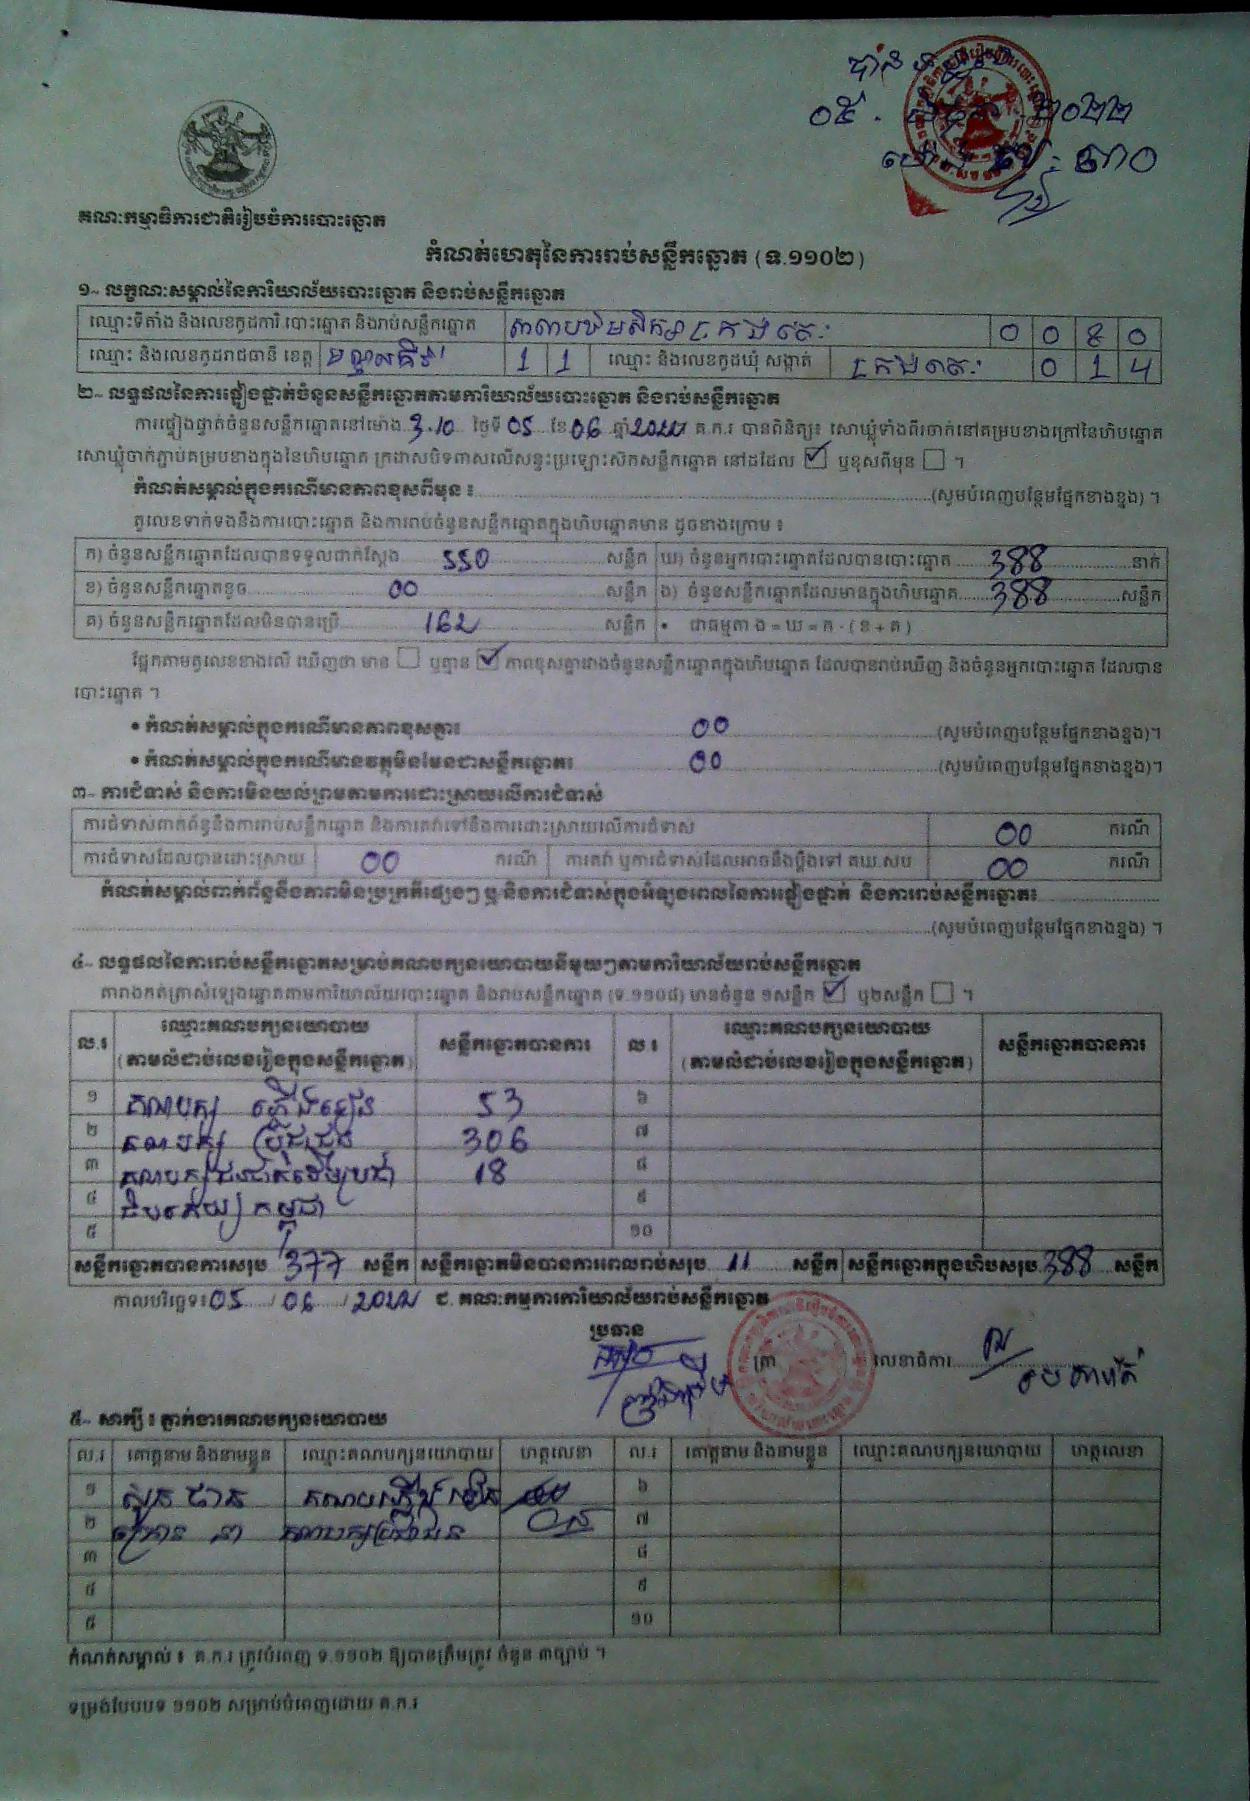 ០៥. មិថុនា ២០២២
គណៈកម្មាធិការជាតិរៀបចំការបោះឆ្នោត
កំណត់ហេតុនៃការរាប់សន្លឹកឆ្នោត (ទ.១១០២)
១~ លក្ខណៈសម្គាល់នៃការិយាល័យបោះឆ្នោត និងរាប់សន្លឹកឆ្នោត
ឈ្មោះទីតាំង និងលេខកូដការិ.បោះឆ្នោត និងរាប់សន្លឹកឆ្នោត 0 0 8 0
ឈ្មោះ និងលេខកូដរាជធានី ខេត្ត មណ្ឌលគីរី 1 1 ឈ្មោះ និងលេខកូដឃុំ សង្កាត់ ក្រងតេះ 0 1 4
២~ លទ្ធផលនៃការផ្ទៀងផ្ទាត់ចំនួនសន្លឹកឆ្នោតតាមការិយាល័យបោះឆ្នោត និងរាប់សន្លឹកឆ្នោត
ការផ្ទៀងផ្ទាត់ចំនួនសន្លឹកឆ្នោតនៅម៉ោង 3.10 ថ្ងៃទី 05 ខែ 06 ឆ្នាំ 2022 គ.ក.រ បានពិនិត្យ៖ សោឃ្មុំទាំងពីរចាក់នៅគម្របខាងក្រៅនៃហិបឆ្នោត
សោឃ្មុំចាក់ភ្ជាប់គម្របខាងក្នុងនៃហិបឆ្នោត ក្រដាសបិទពាសលើសន្ទះប្រឡោះស៊កសន្លឹកឆ្នោត នៅដដែល ឬខុសពីមុន ។
កំណត់សម្គាល់ក្នុងករណីមានភាពខុសពីមុន ៖ (សូមបំពេញបន្ថែមផ្នែកខាងខ្នង) ។
តួលេខទាក់ទងនឹងការបោះឆ្នោត និងការរាប់ចំនួនសន្លឹកឆ្នោតក្នុងហិបឆ្នោតមាន ដូចខាងក្រោម ៖
ក) ចំនួនសន្លឹកឆ្នោតដែលបានទទួលជាក់ស្តែង 550 សន្លឹក ឃ) ចំនួនអ្នកបោះឆ្នោតដែលបានបោះឆ្នោត 388 នាក់
ខ) ចំនួនសន្លឹកឆ្នោតខូច 00 សន្លឹក ង) ចំនួនសន្លឹកឆ្នោតដែលមានក្នុងហិបឆ្នោត 388 សន្លឹក
គ) ចំនួនសន្លឹកឆ្នោតដែលមិនបានប្រើ 162 សន្លឹក • ជាធម្មតា ង = ឃ = ក - ( ខ + គ )
ផ្អែកតាមតួលេខខាងលើ ឃើញថា មាន ឬគ្មាន ភាពខុសគ្នារវាងចំនួនសន្លឹកឆ្នោតក្នុងហិបឆ្នោត ដែលបានរាប់ឃើញ និងចំនួនអ្នកបោះឆ្នោត ដែលបាន
បោះឆ្នោត ។
• កំណត់សម្គាល់ក្នុងករណីមានភាពខុសគ្នា៖ 00 (សូមបំពេញបន្ថែមផ្នែកខាងខ្នង)។
• កំណត់សម្គាល់ក្នុងករណីមានវត្ថុមិនមែនជាសន្លឹកឆ្នោត៖ 00 (សូមបំពេញបន្ថែមផ្នែកខាងខ្នង)។
៣~ ការជំទាស់ និងការមិនយល់ព្រមតាមការដោះស្រាយលើការជំទាស់
ការជំទាស់ពាក់ព័ន្ធនឹងការរាប់សន្លឹកឆ្នោត និងការតវ៉ាទៅនឹងការដោះស្រាយលើការជំទាស់ 00 ករណី
ការជំទាស់ដែលបានដោះស្រាយ 00 ករណី ការតវ៉ា ឬការជំទាស់ដែលអាចនឹងប្តឹងទៅ គឃ.សប 00 ករណី
កំណត់សម្គាល់ពាក់ព័ន្ធនឹងភាពមិនប្រក្រតីផ្សេងៗ ឬ/និងការជំទាស់ក្នុងអំឡុងពេលនៃការផ្ទៀងផ្ទាត់ និងការរាប់សន្លឹកឆ្នោត៖
(សូមបំពេញបន្ថែមផ្នែកខាងខ្នង) ។
៤~ លទ្ធផលនៃការរាប់សន្លឹកឆ្នោតសម្រាប់គណបក្សនយោបាយនីមួយៗតាមការិយាល័យរាប់សន្លឹកឆ្នោត
តារាងកត់ត្រាសំឡេងឆ្នោតតាមការិយាល័យបោះឆ្នោត និងរាប់សន្លឹកឆ្នោត (ទ.១១០៨) មានចំនួន ១សន្លឹក ឬ២សន្លឹក ។
ល.រ ឈ្មោះគណបក្សនយោបាយ (តាមលំដាប់លេខរៀងក្នុងសន្លឹកឆ្នោត) សន្លឹកឆ្នោតបានការ ល.រ ឈ្មោះគណបក្សនយោបាយ (តាមលំដាប់លេខរៀងក្នុងសន្លឹកឆ្នោត) សន្លឹកឆ្នោតបានការ
១ គណបក្ស ភ្លើងទៀន 53 ៦
២ គណបក្ស ប្រជាជន 306 ៧
៣ គណបក្ស 18 ៨
៤ កម្ពុជា ៩
៥ ១០
សន្លឹកឆ្នោតបានការសរុប 377 សន្លឹក សន្លឹកឆ្នោតមិនបានការពេលរាប់សរុប 11 សន្លឹក សន្លឹកឆ្នោតក្នុងហិបសរុប 388 សន្លឹក
កាលបរិច្ឆេទ៖ 05 / 06 / 2022 ជ. គណៈកម្មការការិយាល័យរាប់សន្លឹកឆ្នោត
ប្រធាន
ត្រា លេខាធិការ
៥~ សាក្សី ៖ ភ្នាក់ងារគណបក្សនយោបាយ
ល.រ គោត្តនាម និងនាមខ្លួន ឈ្មោះគណបក្សនយោបាយ ហត្ថលេខា ល.រ គោត្តនាម និងនាមខ្លួន ឈ្មោះគណបក្សនយោបាយ ហត្ថលេខា
១ គណបក្សភ្លើងទៀន ៦
២ គណបក្សប្រជាជន ៧
៣ ៨
៤ ៩
៥ ១០
កំណត់សម្គាល់ ៖ គ.ក.រ ត្រូវបំពេញ ទ.១១០២ ឱ្យបានត្រឹមត្រូវ ចំនួន ៣ច្បាប់ ។
ទម្រង់បែបបទ ១១០២ សម្រាប់បំពេញដោយ គ.ក.រ